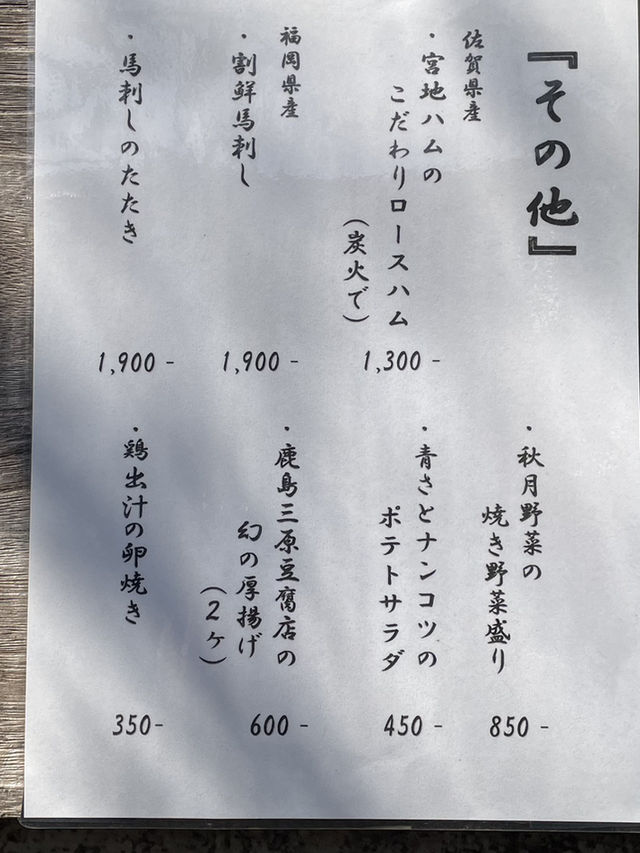 『その他』
佐賀県産
・宮地ハムの
こだわりロースハム
（炭火で）
1,300 -
福岡県産
・割鮮馬刺し
1,900 -
・馬刺しのたたき
1,900 -
・秋月野菜の
焼き野菜盛り
850 -
・青さとナンコツの
ポテトサラダ
450 -
・鹿島三原豆腐店の
幻の厚揚げ
（2ヶ）
600 -
・鶏出汁の卵焼き
350-